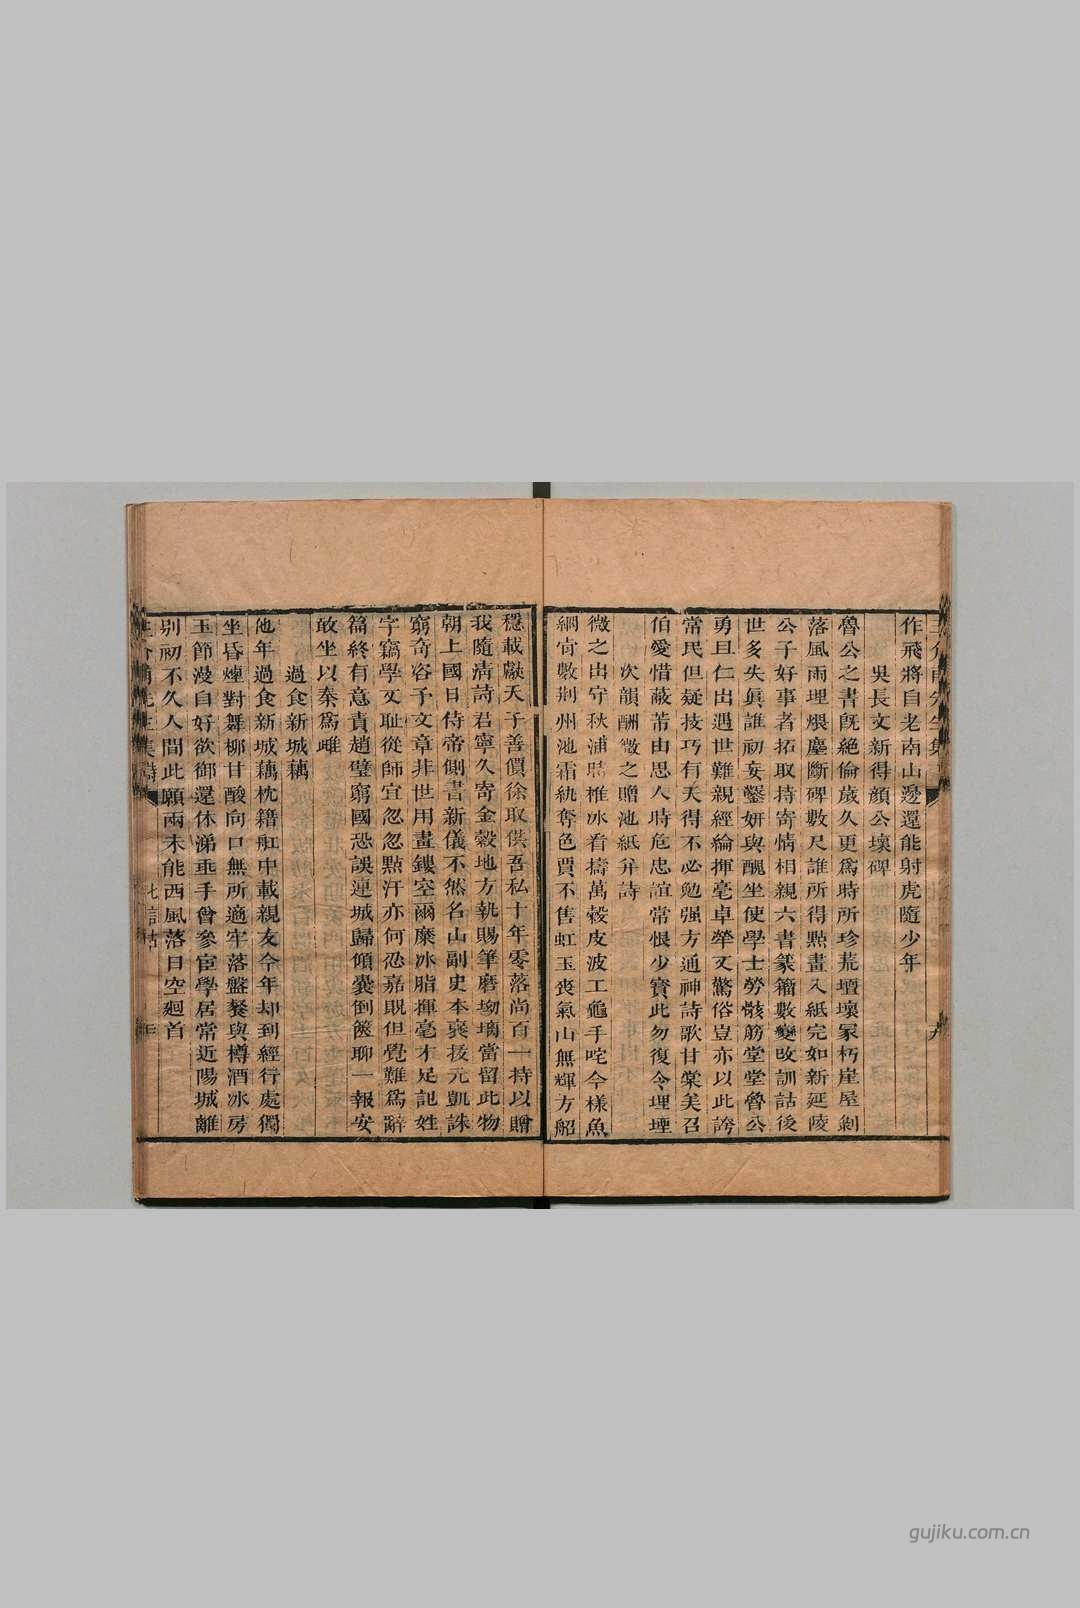 作飛將自老南山邊還能射虎隨少年
吳長文新得顔公壞碑
魯公之書旣絶倫歲久更爲時所珍荒壇壞冢朽崖屋剝
落風雨埋煨塵斷碑數尺誰所得點畫入紙完如新延陵
公子好事者拓取持寄情相親六書篆籀數變改訓詁後
世多失眞誰初妄鑿姸與醜坐使學士勞骸筋堂堂魯公
勇且仁出遇世難親經綸揮毫卓犖又驚俗豈亦以此誇
常民但疑技巧有天得不必勉强方通神詩歌甘棠美召
伯愛惜蔽芾由思人時危忠誼常恨少寳此勿復令埋堙
次韻酬微之贈池紙并詩
微之出守秋浦時椎冰看擣萬穀皮波工龜手咤今様魚
網肯數荆州池霜紈奪色賈不售虹玉喪氣山無輝方船
穩載獻天子善價徐取供吾私十年零落尚百一持以贈
我隨淸詩君寧久寄金穀地方執賜筆磨坳墀當留此物
朝上國日侍帝側書新儀不然名山副史本褒拔元凱誅
窮奇咨予文章非世用畫鏤空爾糜冰脂揮毫才足記姓
字竊學又耻從師宜忽忽點汙亦何忍嘉貺但覺難爲辭
篇終有意責趙璧窮國恐誤連城歸傾囊倒篋聊一報安
敢坐以秦爲雌
過食新城藕
他年過食新城藕枕籍舡中載親友今年却到經行處獨
坐昏煙對舞柳甘酸向口無所適牢落盤餐與樽酒冰房
玉節漫自好欲御還休涕垂手曾參宦學居常近陽城離
別初不久人間此願兩未能西風落日空迴首
gujiku.com.cn